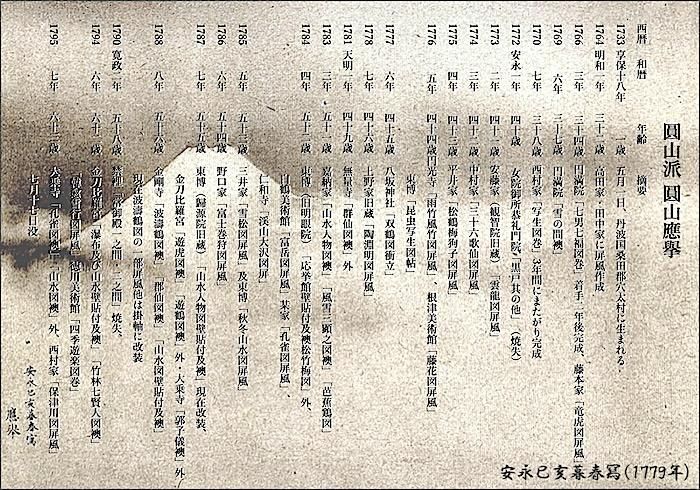 圓山派 圓山應擧
西暦 和暦 年齢 摘要
1733 享保十八年 一歳 五月一日、丹波国桑田郡穴太村に生まれる・
1764 明和一年 三十二歳 高田家・田中家に屏風作成
1766 三年 三十四歳 円満院「七男七福図巻」着手、年後完成、藤本家「竜虎図屏風」
1769 六年 三十七歳 円満院「雪の間襖」
1770 七年 三十八歳 西村家「写生図巻」3年間にまたがり完成
1772 安永一年 四十歳 女院御所恭礼門院「黒戸其の他」（焼失）
1773 二年 四十一歳 安藤家（観智院旧蔵）「雲龍図屏風」
1774 三年 四十二歳 中村家「三十六歌仙図屏風」
1775 四年 四十三歳 平井家「松鶴梅狗子図屏風」
1776 五年 四十四歳 円光寺「雨竹風竹図屏風」、根津美術館「藤花図屏風」
東博「昆虫写生図帖」
1777 六年 四十五歳 八坂神社「双鶴図衝立」
1778 七年 四十六歳 上野家旧蔵「陶淵明図屏風」
1781 天明一年 四十九歳 無量寺「群仙図襖」外
1783 三年 五十一歳 嘉納家「山水人物図襖」「風雪三顧之図襖」「芭蕉鶴図」
1784 四年 五十二歳 東博（旧明眼院）「応挙館壁貼付及襖松竹梅図」外、
白鶴美術館「富岳図屏風」某家「孔雀図屏風」、
仁和寺「渓山大沢図屏」
1785 五年 五十三歳 三井家「雪松図屏風」及東博「秋冬山水図屏風」
1786 六年 五十四歳 野口家「富士巻狩図屏風」
1787 七年 五十五歳 東博（帰源院旧蔵）「山水人物図壁貼付及襖」現在改装、
金刀比羅宮「遊虎図襖」「遊鶴図襖」外・大乗寺「郭子儀襖」外／
1788 八年 五十六歳 金剛寺「波濤図襖」「郡仙図襖」「山水図壁貼付及襖」
現在波濤鶴図の一部屏風他は掛軸に改装
1790 寛政二年 五十八歳 禁裡「常御殿一之間、二之間」焼失、
1794 六年 六十二歳 金刀比羅宮「瀑布及び山水壁貼付及襖」「竹林七賢人図襖」
徳川美術館「四季遊楽図巻」
1795 七年 六十三歳 大乗寺「孔雀図襖」「山水図襖」外、西村家「保津川図屏風」
七月十七日没
安永己亥暮春寫
應擧
安永己亥暮春寫(1779年)